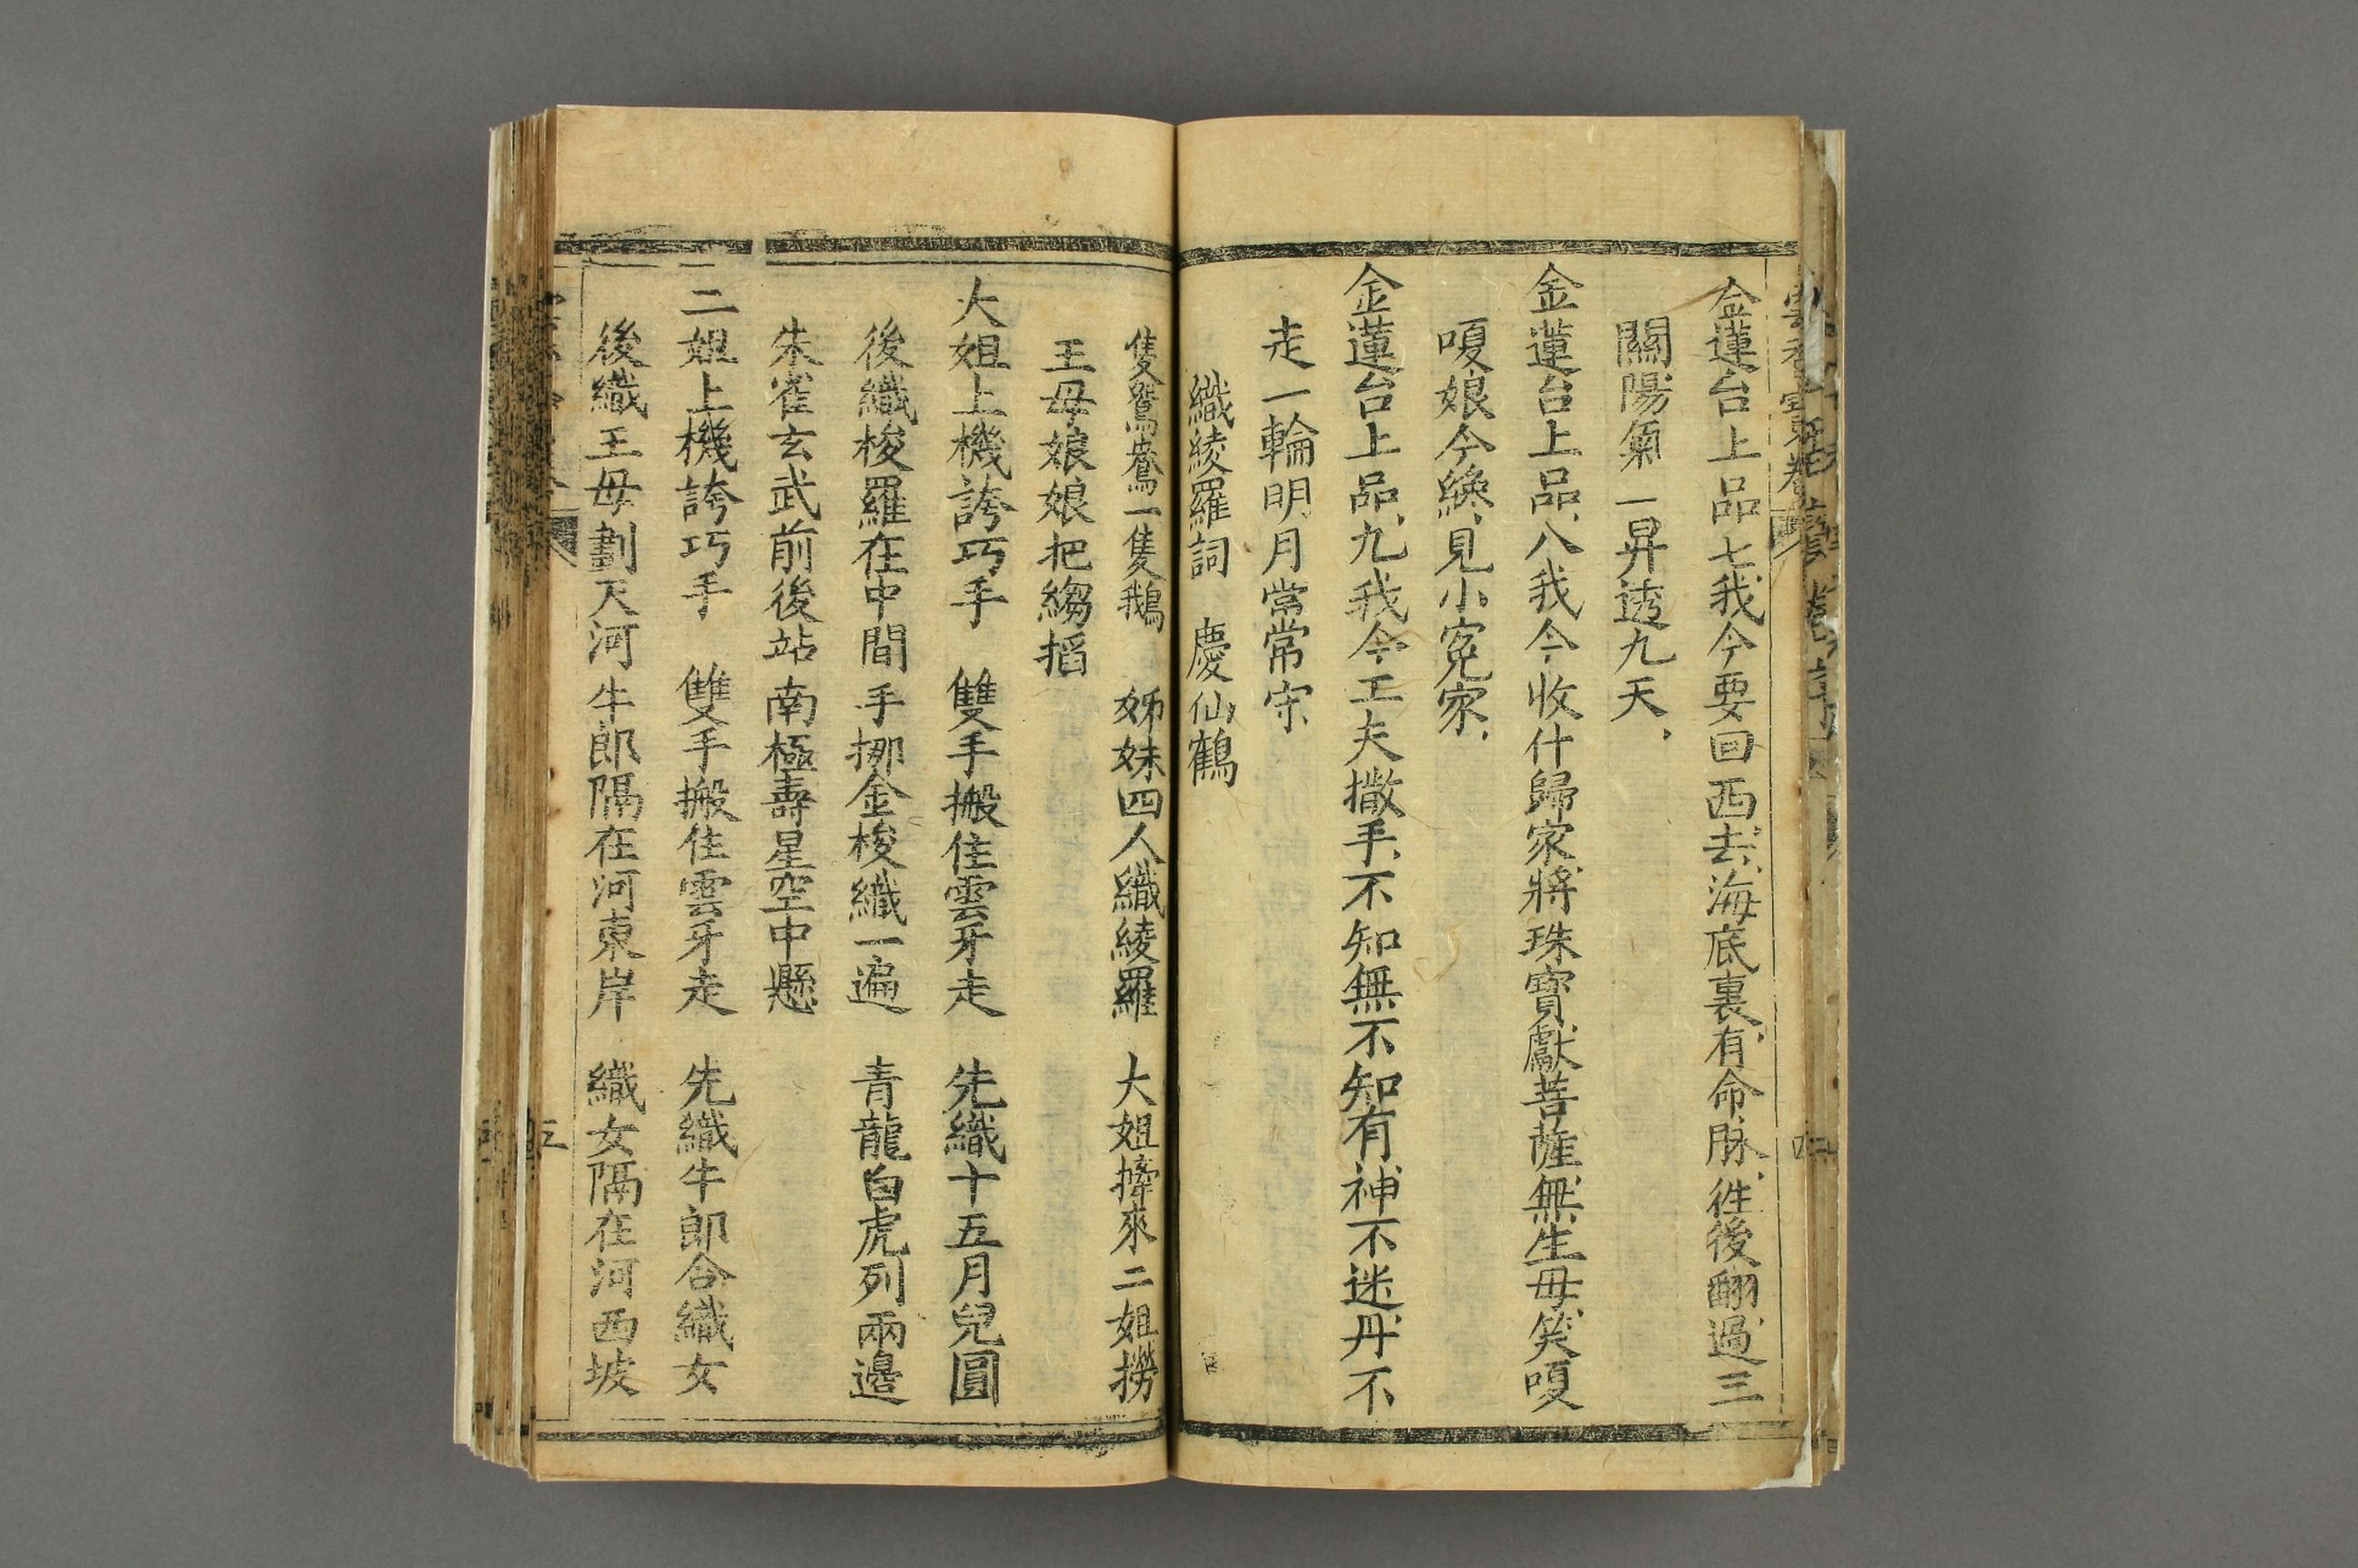 金蓮台上品七我今要回西去海底裏有命脉徃後翻過三
關陽氣一昇透九天
金蓮台上品八我今收什歸家將珠寳獻菩薩無生母笑嗄
嗄娘今纔見小寃家
金蓮台上品九我今工夫撒手不知無不知有神不迷丹不
走一輪明月常常守
織綾羅詞　慶仙鶴
隻鴛鴦一隻鵝　姊妹四人織綾羅　大姐擰來二姐撈
王母娘娘把縐搯
大姐上機誇巧手　雙手搬住雲牙走　先織十五月兒圓
後織梭羅在中間　手挪金梭織一遍　青龍白虎列兩邊
朱雀玄武前後站　南極壽星空中懸
二姐上機誇巧手　雙手搬住雲牙走　先織牛郎合織女
後織王母劃天河　牛郎隔在河東岸　織女隔在河西坡
五